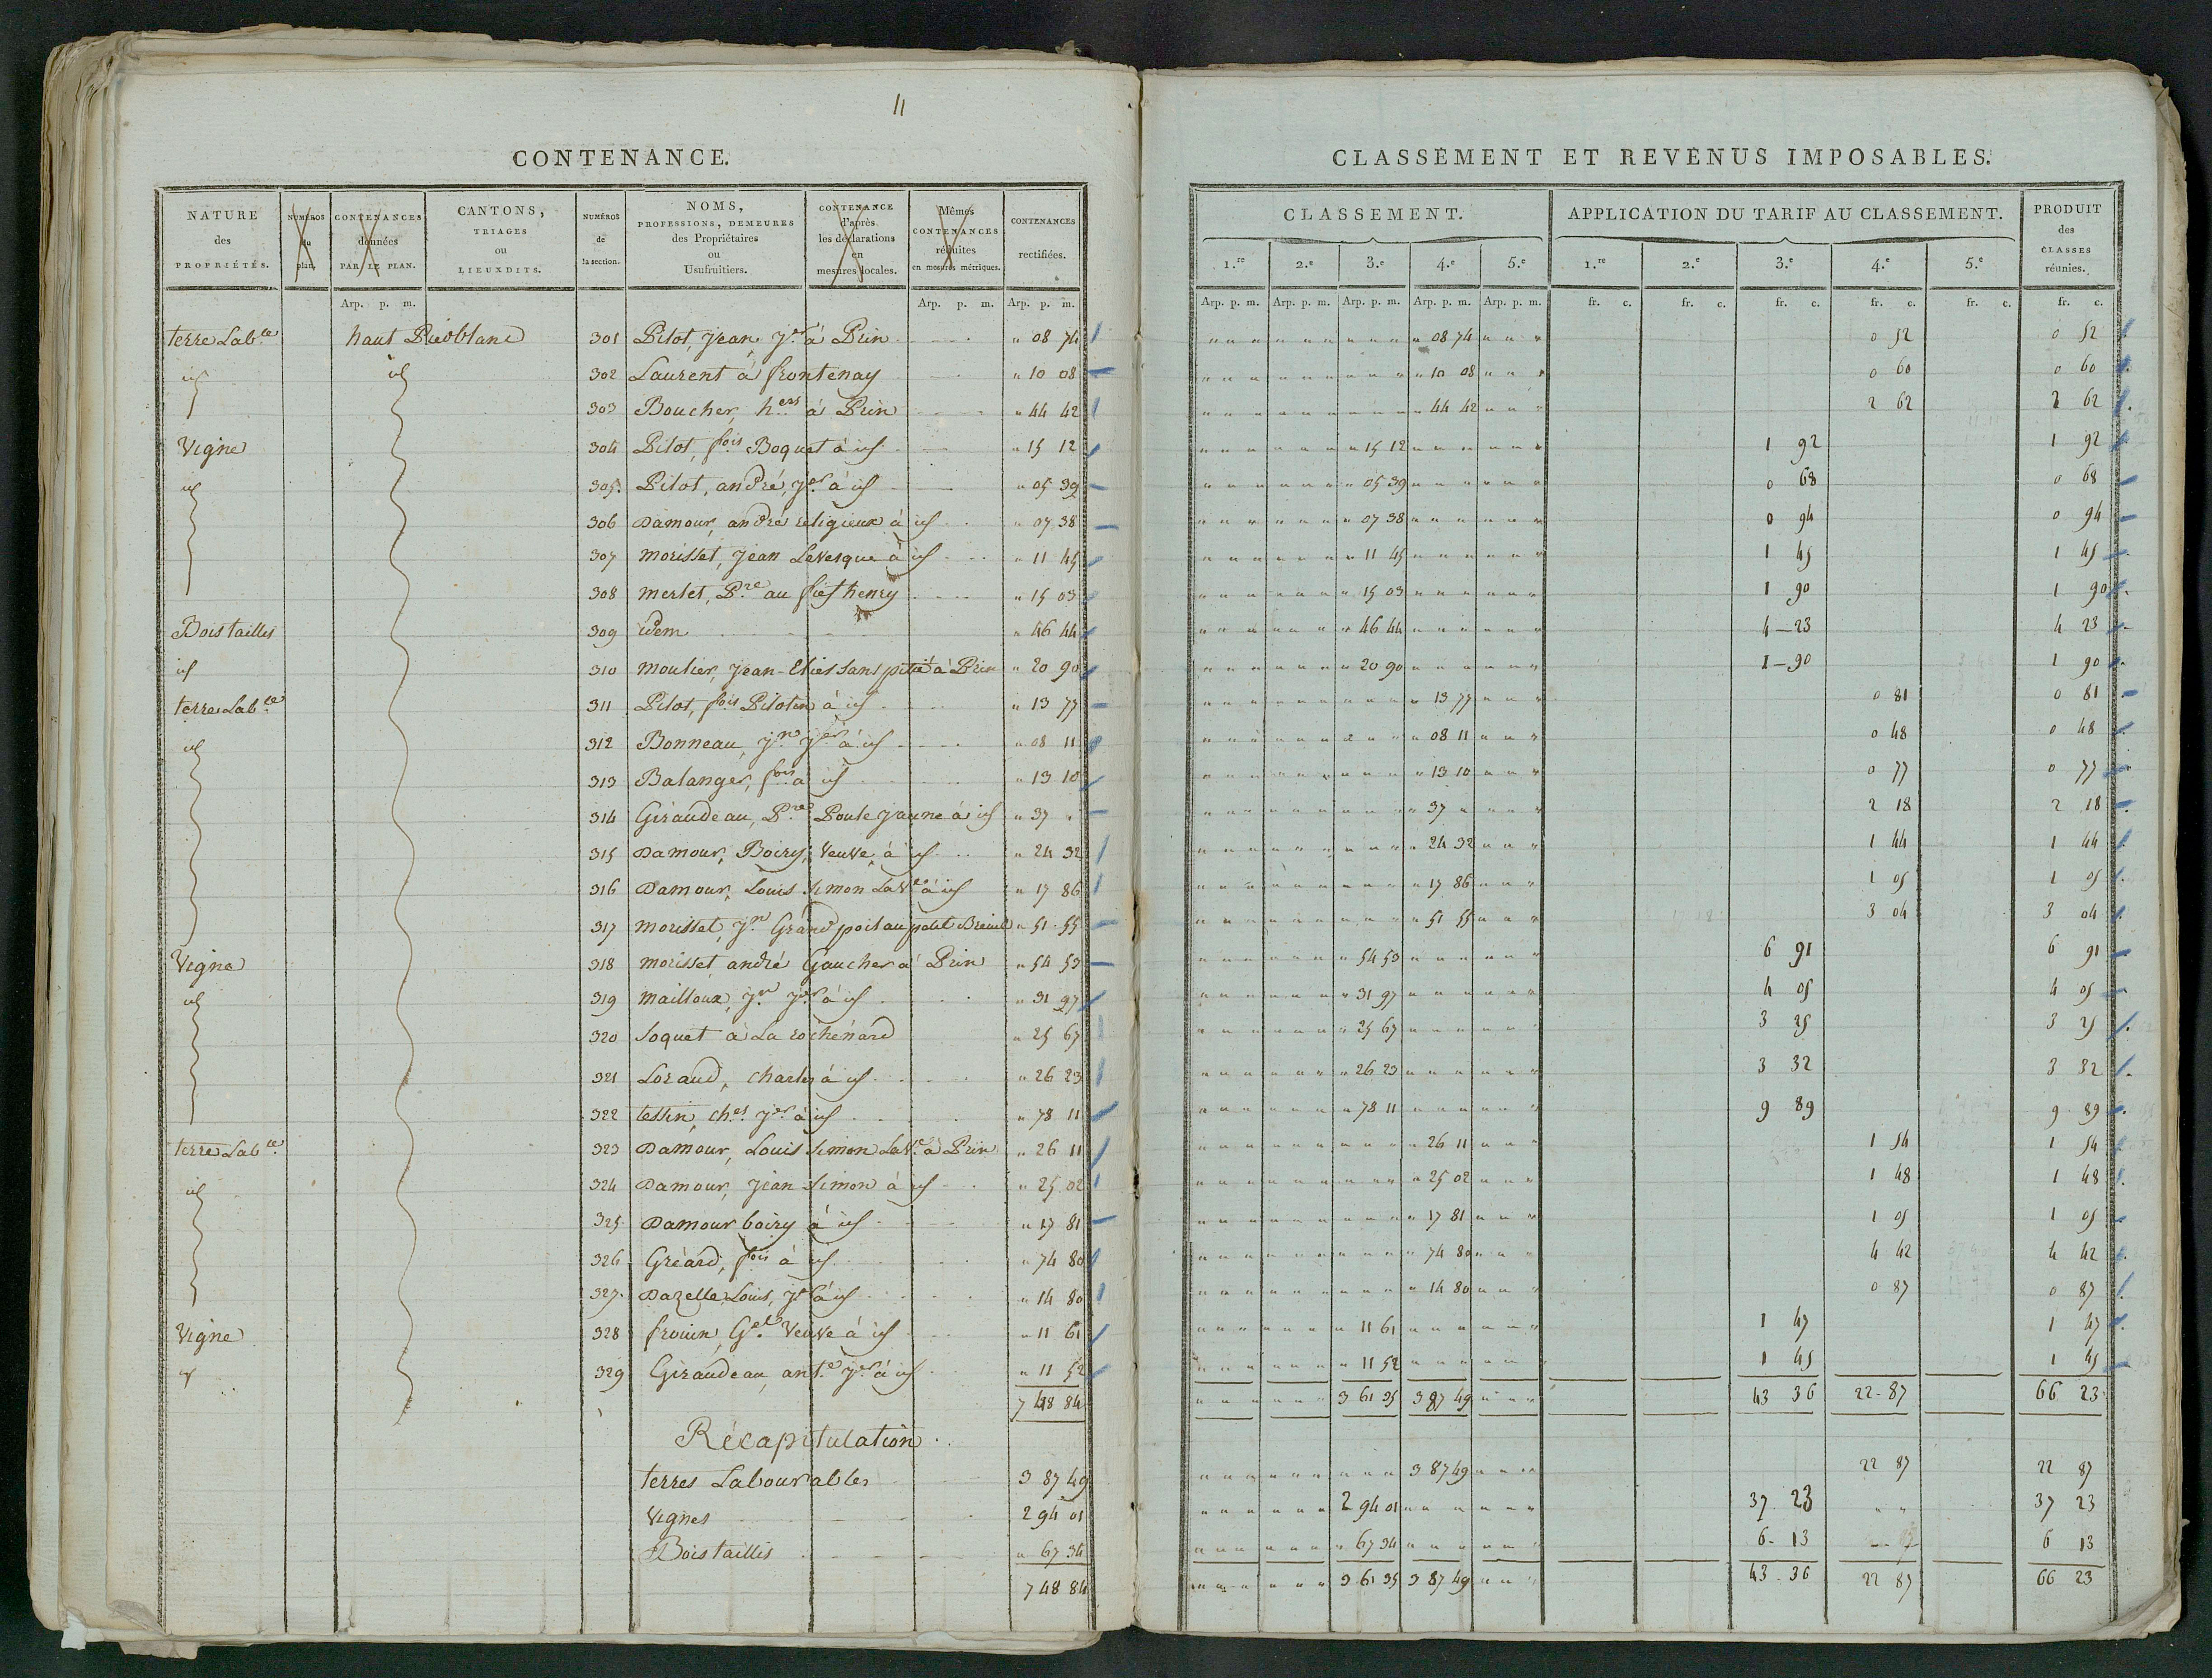 11
CONTENANCE.
NATURE des PROPRIÉTÉS. NUMÉROS du plan. CONTENANCES données PAR LE PLAN. CANTONS, TRIAGES ou LIEUXDITS. NUMÉROS de la section. NOMS, PROFESSIONS, DEMEURES des Propriétaires ou Usufruitiers. CONTENANCE d'après les déclarations en mesures locales. Mêmes CONTENANCES réduites en mesures métriques. CONTENANCES rectifiées.
Arp. p. m. Arp. p. m. Arp. p. m.
terre Lab.le haut 301 Pilot, Jean, J.er à Prin " 08 74
id id 302 Laurent à frontenay " 10 08
303 Boucher, h.ers à Prin " 44 42
Vigne 304 Pilot, f.ois Boquet à id " 15 12
id 305. Pilot, andré, J.er à id " 05 39
306 Damour, andré religieux à id " 07 38
307 morisset, Jean Levesque à id " 11 45
308 merlet, P.re au fief henry " 15 03
Bois taillis 309 idem " 46 44
id 310 moulier, Jean-Elie sans pitié à Prin " 20 90
terre Lab.le 311 Pilot, f.ois Pilotin à id " 13 77
id 312 Bonneau, J.n J.er à id " 08 11
313 Balanger, f.ois à id " 13 10
314 Giraudeau, P.re Poule jaune à id " 37 "
315 Damour, Boizy, Veuve, à id " 24 32
316 Damour, Louis Simon La V.e à id " 17 86
317 morisset, J.n Grand poil au petit Breuil " 51 55
Vigne 318 morisset andré Gaucher à Prin " 54 53
id 319 mailloux, J.n J.er à id " 31 97
320 Soquet à La rochénard " 25 67
321 Loraud, charles à id " 26 23
322 tessin, ch.es J.er à id " 78 11
terre Lab.le 323 Damour, Louis Simon La V.e à Prin " 26 11
id 324 Damour, Jean Simon à id " 25 02
325. Damour boizy à id " 17 81
326 Gréard, f.ois à id " 74 80
327. Dazelle Louis, J.er à id " 14 80
Vigne 328 frouin, G.el Veuve à id " 11 61
id 329 Giraudeau, ant.e J.er à id " 11 52
7 48 84
Récapitulation.
terres Labourables 3 87 49
Vignes 2 94 01
Bois taillis " 67 34
7 48 84
CLASSEMENT ET REVENUS IMPOSABLES.
CLASSEMENT. APPLICATION DU TARIF AU CLASSEMENT. PRODUIT des CLASSES réunies.
1.re 2.e 3.e 4.e 5.e 1.re 2.e 3.e 4.e 5.e
Arp. p. m. Arp. p. m. Arp. p. m. Arp. p. m. Arp. p. m. fr. c. fr. c. fr. c. fr. c. fr. c. fr. c.
" 08 74 0 52 0 52
" 10 08 0 60 0 60
" 44 42 2 62 2 62
" 15 12 1 92 1 92
" 05 39 0 68 0 68
" 07 38 0 94 0 94
" 11 45 1 45 1 45
" 15 03 1 90 1 90
" 46 44 4-23 4 23
" 20 90 1-90 1 90
" 13 77 0 81 0 81
" 08 11 0 48 0 48
" 13 10 0 77 0 77
" 37 " 2 18 2 18
" 24 32 1 44 1 44
" 17 86 1 05 1 05
" 51 55 3 04 3 04
" 54 53 6 91 6 91
" 31 97 4 05 4 05
" 25 67 3 25 3 25
" 26 23 3 32 3 32
" 78 11 9 89 9 89
" 26 11 1 54 1 54
" 25 02 1 48 1 48
" 17 81 1 05 1 05
" 74 80 4 42 4 42
" 14 80 0 87 0 87
" 11 61 1 47 1 47
" 11 52 1 45 1 45
3 61 35 3 87 49 43 36 22-87 66 23
3 87 49 22 87 22 87
2 94 01 37-23 37 23
" 67 34 6-13 6 13
3 61 35 3 87 49 43-36 22 87 66 23